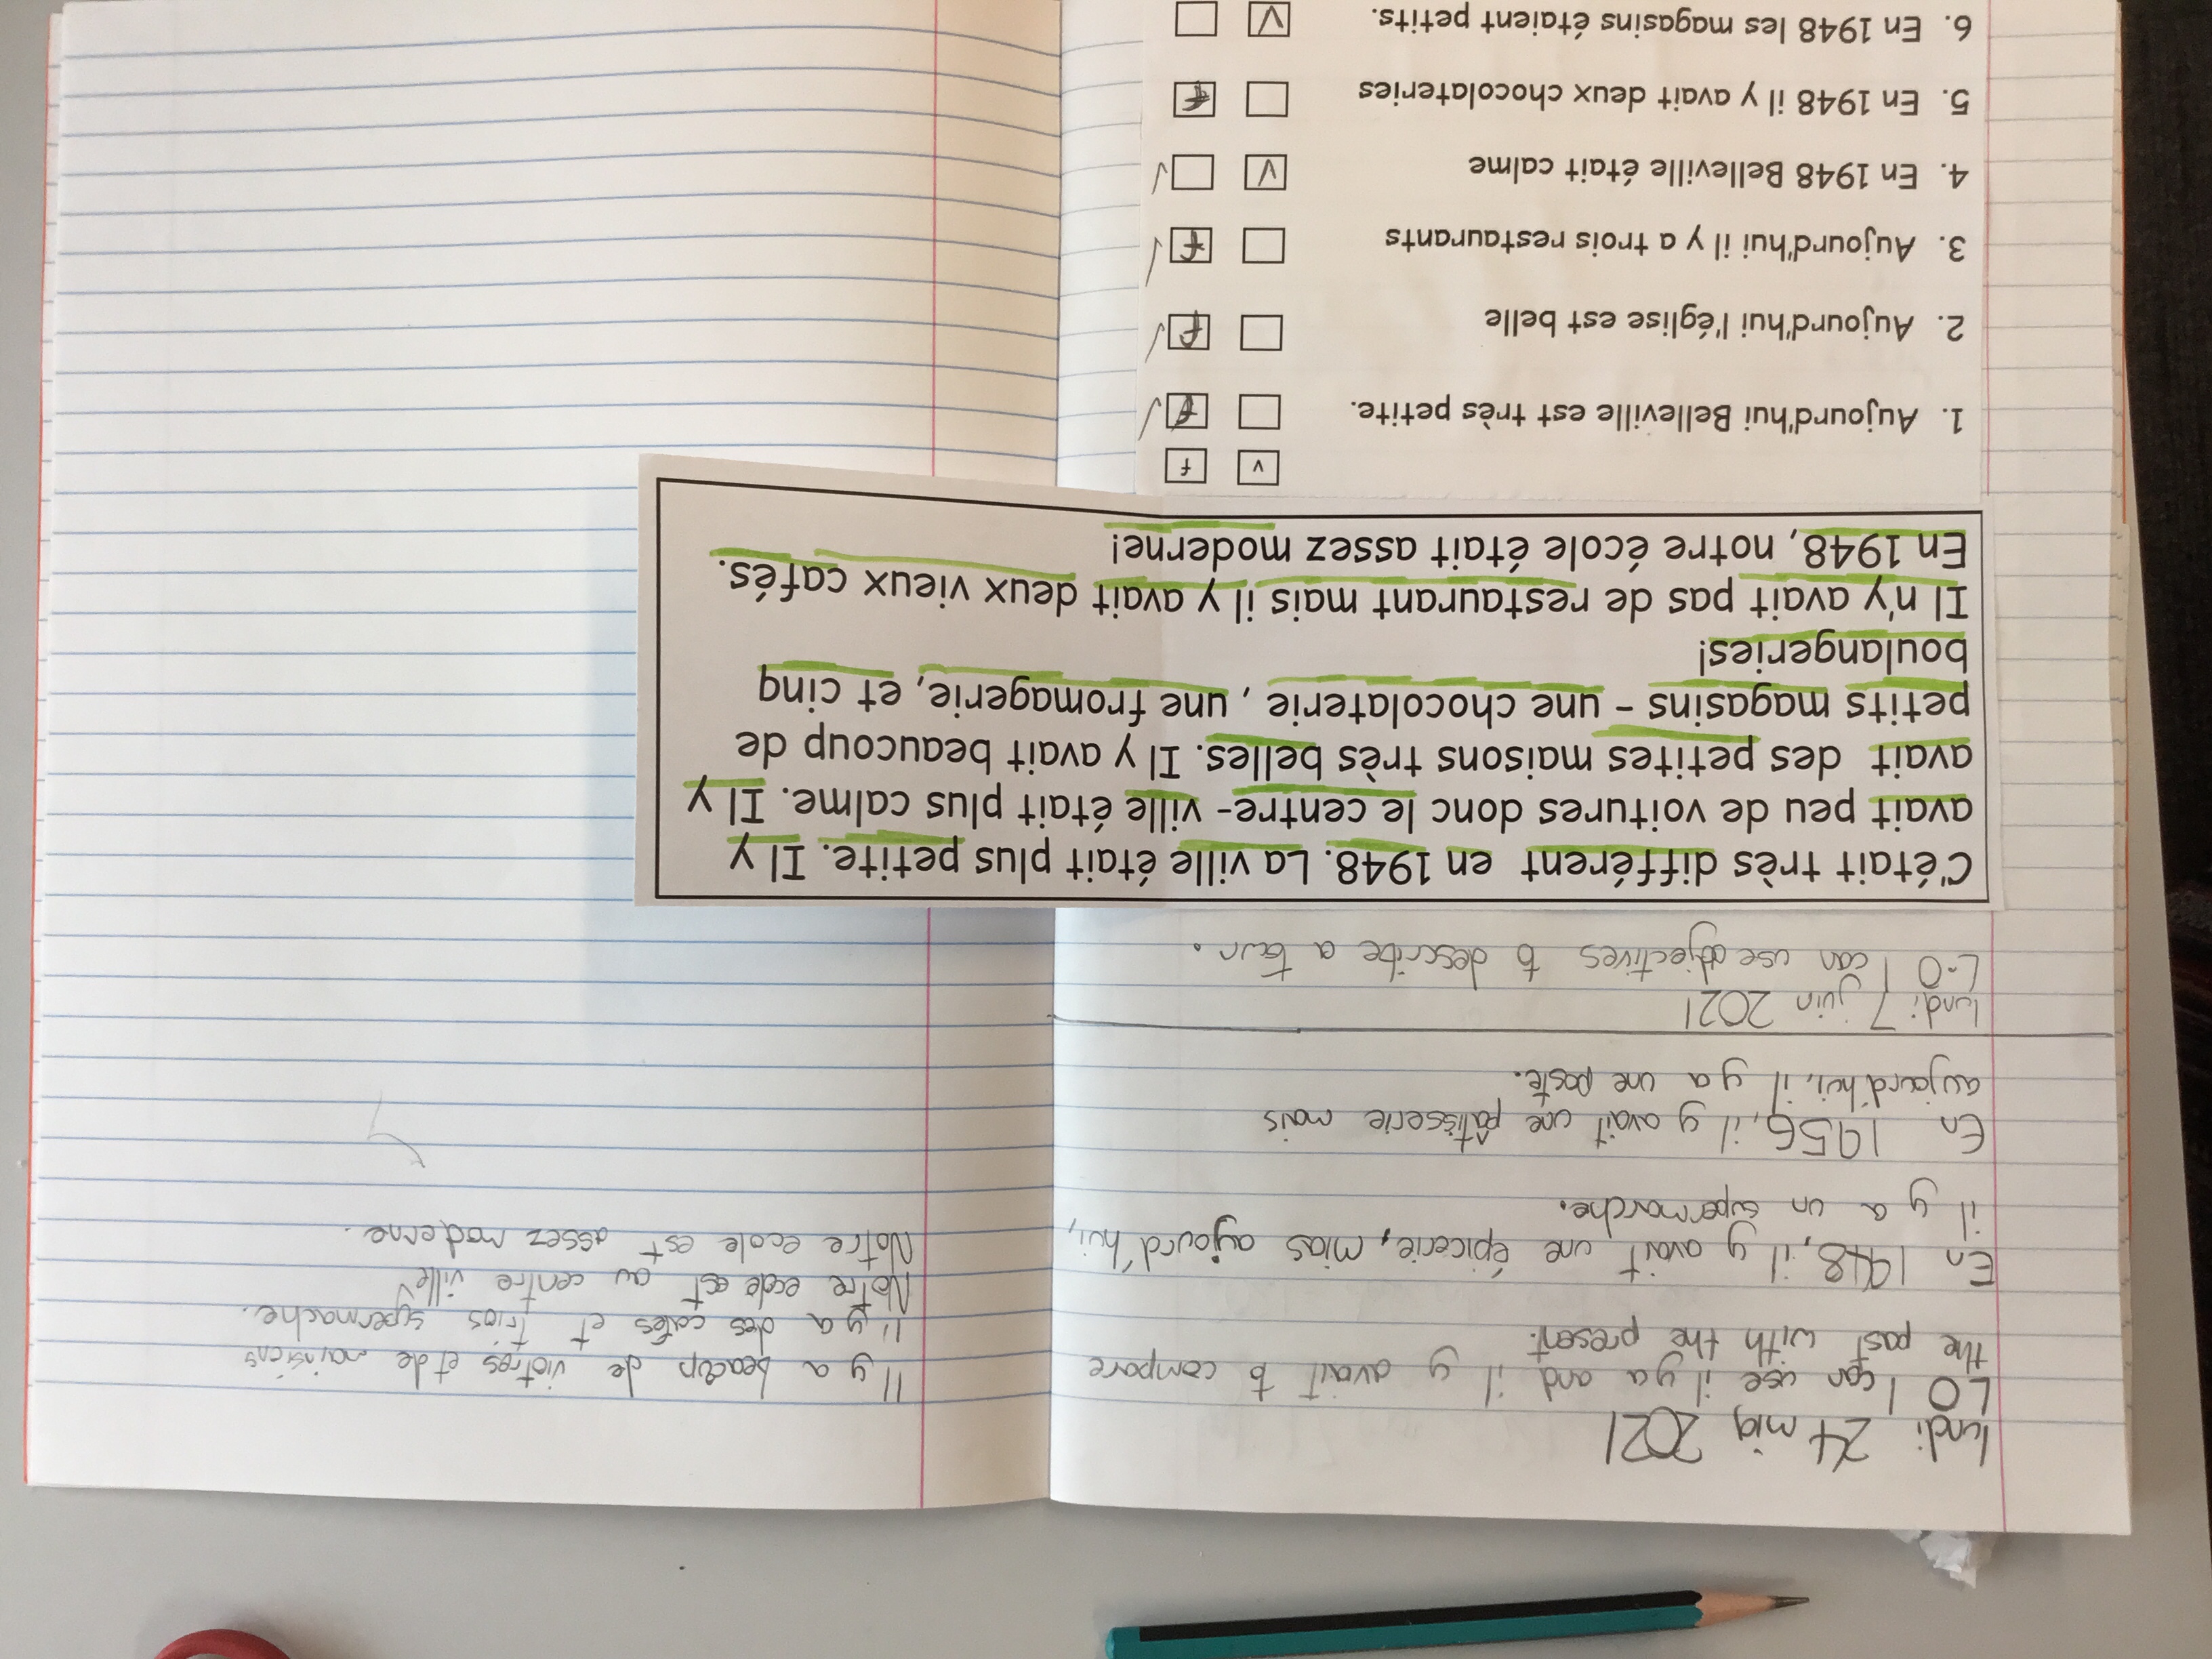 lundi 24 mia 2021
LO I can use il ya and il y avait to compare
the past with the present.
En 1948, il y avait une épicerie, mias aujourd'hui,
il y a un supermarche.
En 1956, il y avait une pâtisserie mais
aujourd'hui, il y a une poste.
lundi 7 juin 2021
L.O I can use adjectives to describe a town.
C'était très différent en 1948. La ville était plus petite. Il y
avait peu de voitures donc le centre- ville était plus calme. Il y
avait des petites maisons très belles. Il y avait beaucoup de
petits magasins - une chocolaterie , une fromagerie, et cinq
boulangeries!
Il n'y avait pas de restaurant mais il y avait deux vieux cafés.
En 1948, notre école était assez moderne!
v f
1. Aujourd'hui Belleville est très petite. f
2. Aujourd'hui l'église est belle f
3. Aujourd'hui il y a trois restaurants f
4. En 1948 Belleville était calme V
5. En 1948 il y avait deux chocolateries f
6. En 1948 les magasins étaient petits. V
Il y a de et de
Il y a des cafés et trios supermache.
Notre ecole est au centre ville
Notre ecole est assez moderne.